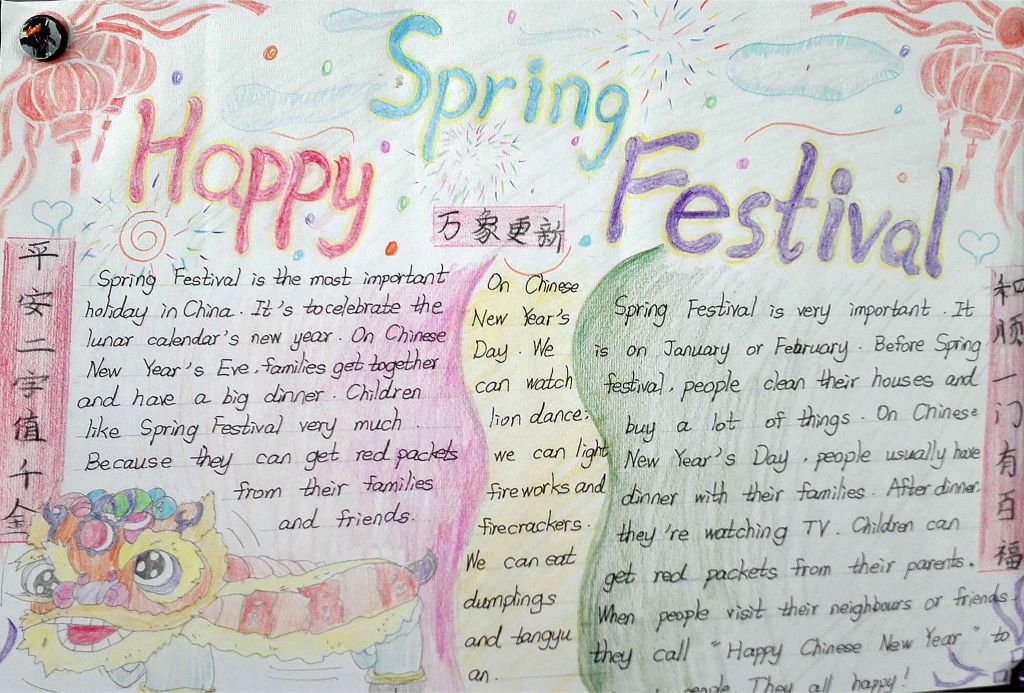 Happy Spring Festival
万象更新
平安二字值千金
Spring Festival is the most important
holiday in China. It's tocelebrate the
lunar calendar's new year. On Chinese
New Year's Eve. families get together
and have a big dinner. Children
like Spring Festival very much.
Because they can get red packets
from their families
and friends.
On Chinese
New Year's
Day. We
can watch
lion dance.
we can light
fireworks and
firecrackers.
We can eat
dumplings
and tangyu
an.
Spring Festival is very important. It
is on January or February. Before Spring
festival, people clean their houses and
buy a lot of things. On Chinese
New Year's Day, people usually have
dinner with their families. After dinner.
they're watching TV. Children can
get red packets from their parents.
When people visit their neighbours or friends.
they call "Happy Chinese New Year" to
people They all happy!
和顺一门有百福